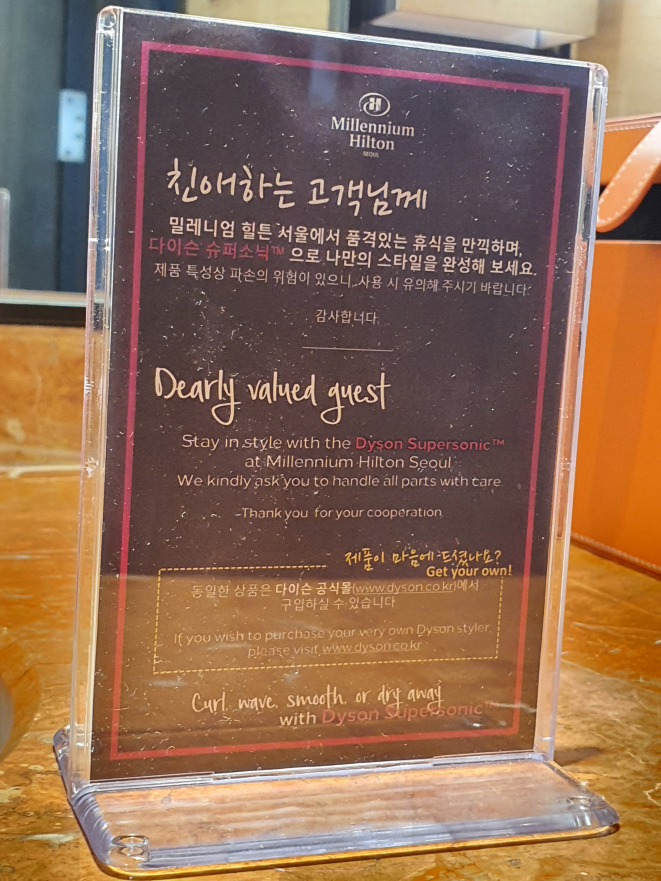 Millennium
Hilton
SEOUL
친애하는 고객님께
밀레니엄 힐튼 서울에서 품격있는 휴식을 만끽하며,
다이슨 슈퍼소닉™ 으로 나만의 스타일을 완성해 보세요.
제품 특성상 파손의 위험이 있으니, 사용 시 유의해 주시기 바랍니다.
감사합니다
Dearly valued guest
Stay in style with the Dyson Supersonic™
at Millennium Hilton Seoul
We kindly ask you to handle all parts with care.
Thank you for your cooperation
제품이 마음에 드셨나요?
Get your own!
동일한 상품은 다이슨 공식몰(www.dyson.co.kr)에서
구입하실 수 있습니다
If you wish to purchase your very own Dyson styler,
please visit www.dyson.co.kr
Curl, wave, smooth, or dry away
with Dyson Supersonic™